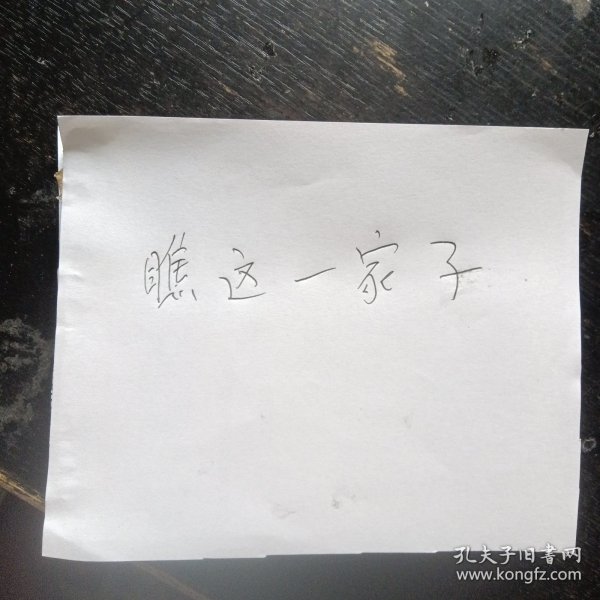 瞧这一家子
孔夫子旧书网
www.kongfz.com